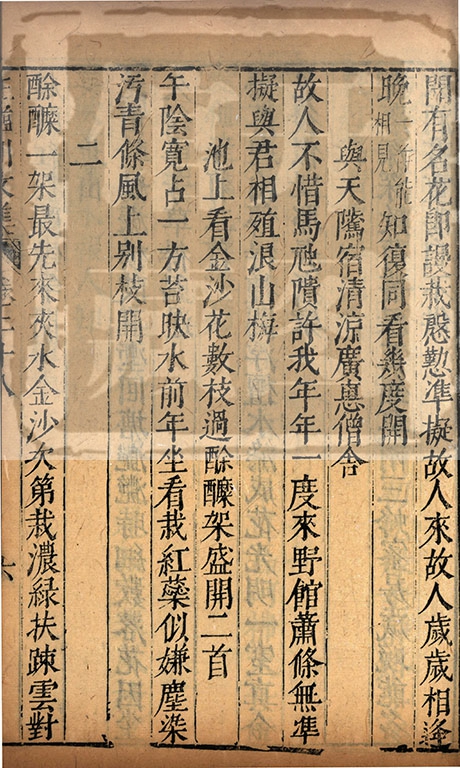 聞有名花即謾栽慇懃準擬故人來故人歲歲相逢
晚一作能相見知復同看幾度開
與天騭宿清涼廣惠僧舍
故人不惜馬虺隤許我年年一度來野館蕭條無準
擬與君相殖浪山梅
池上看金沙花數枝過酴醾架盛開二首
午陰寬占一方苔映水前年坐看栽紅蘂似嫌塵染
汚青條風上别枝開
二
酴醾一架最先來夾水金沙次第栽濃緑扶疎雲對
六